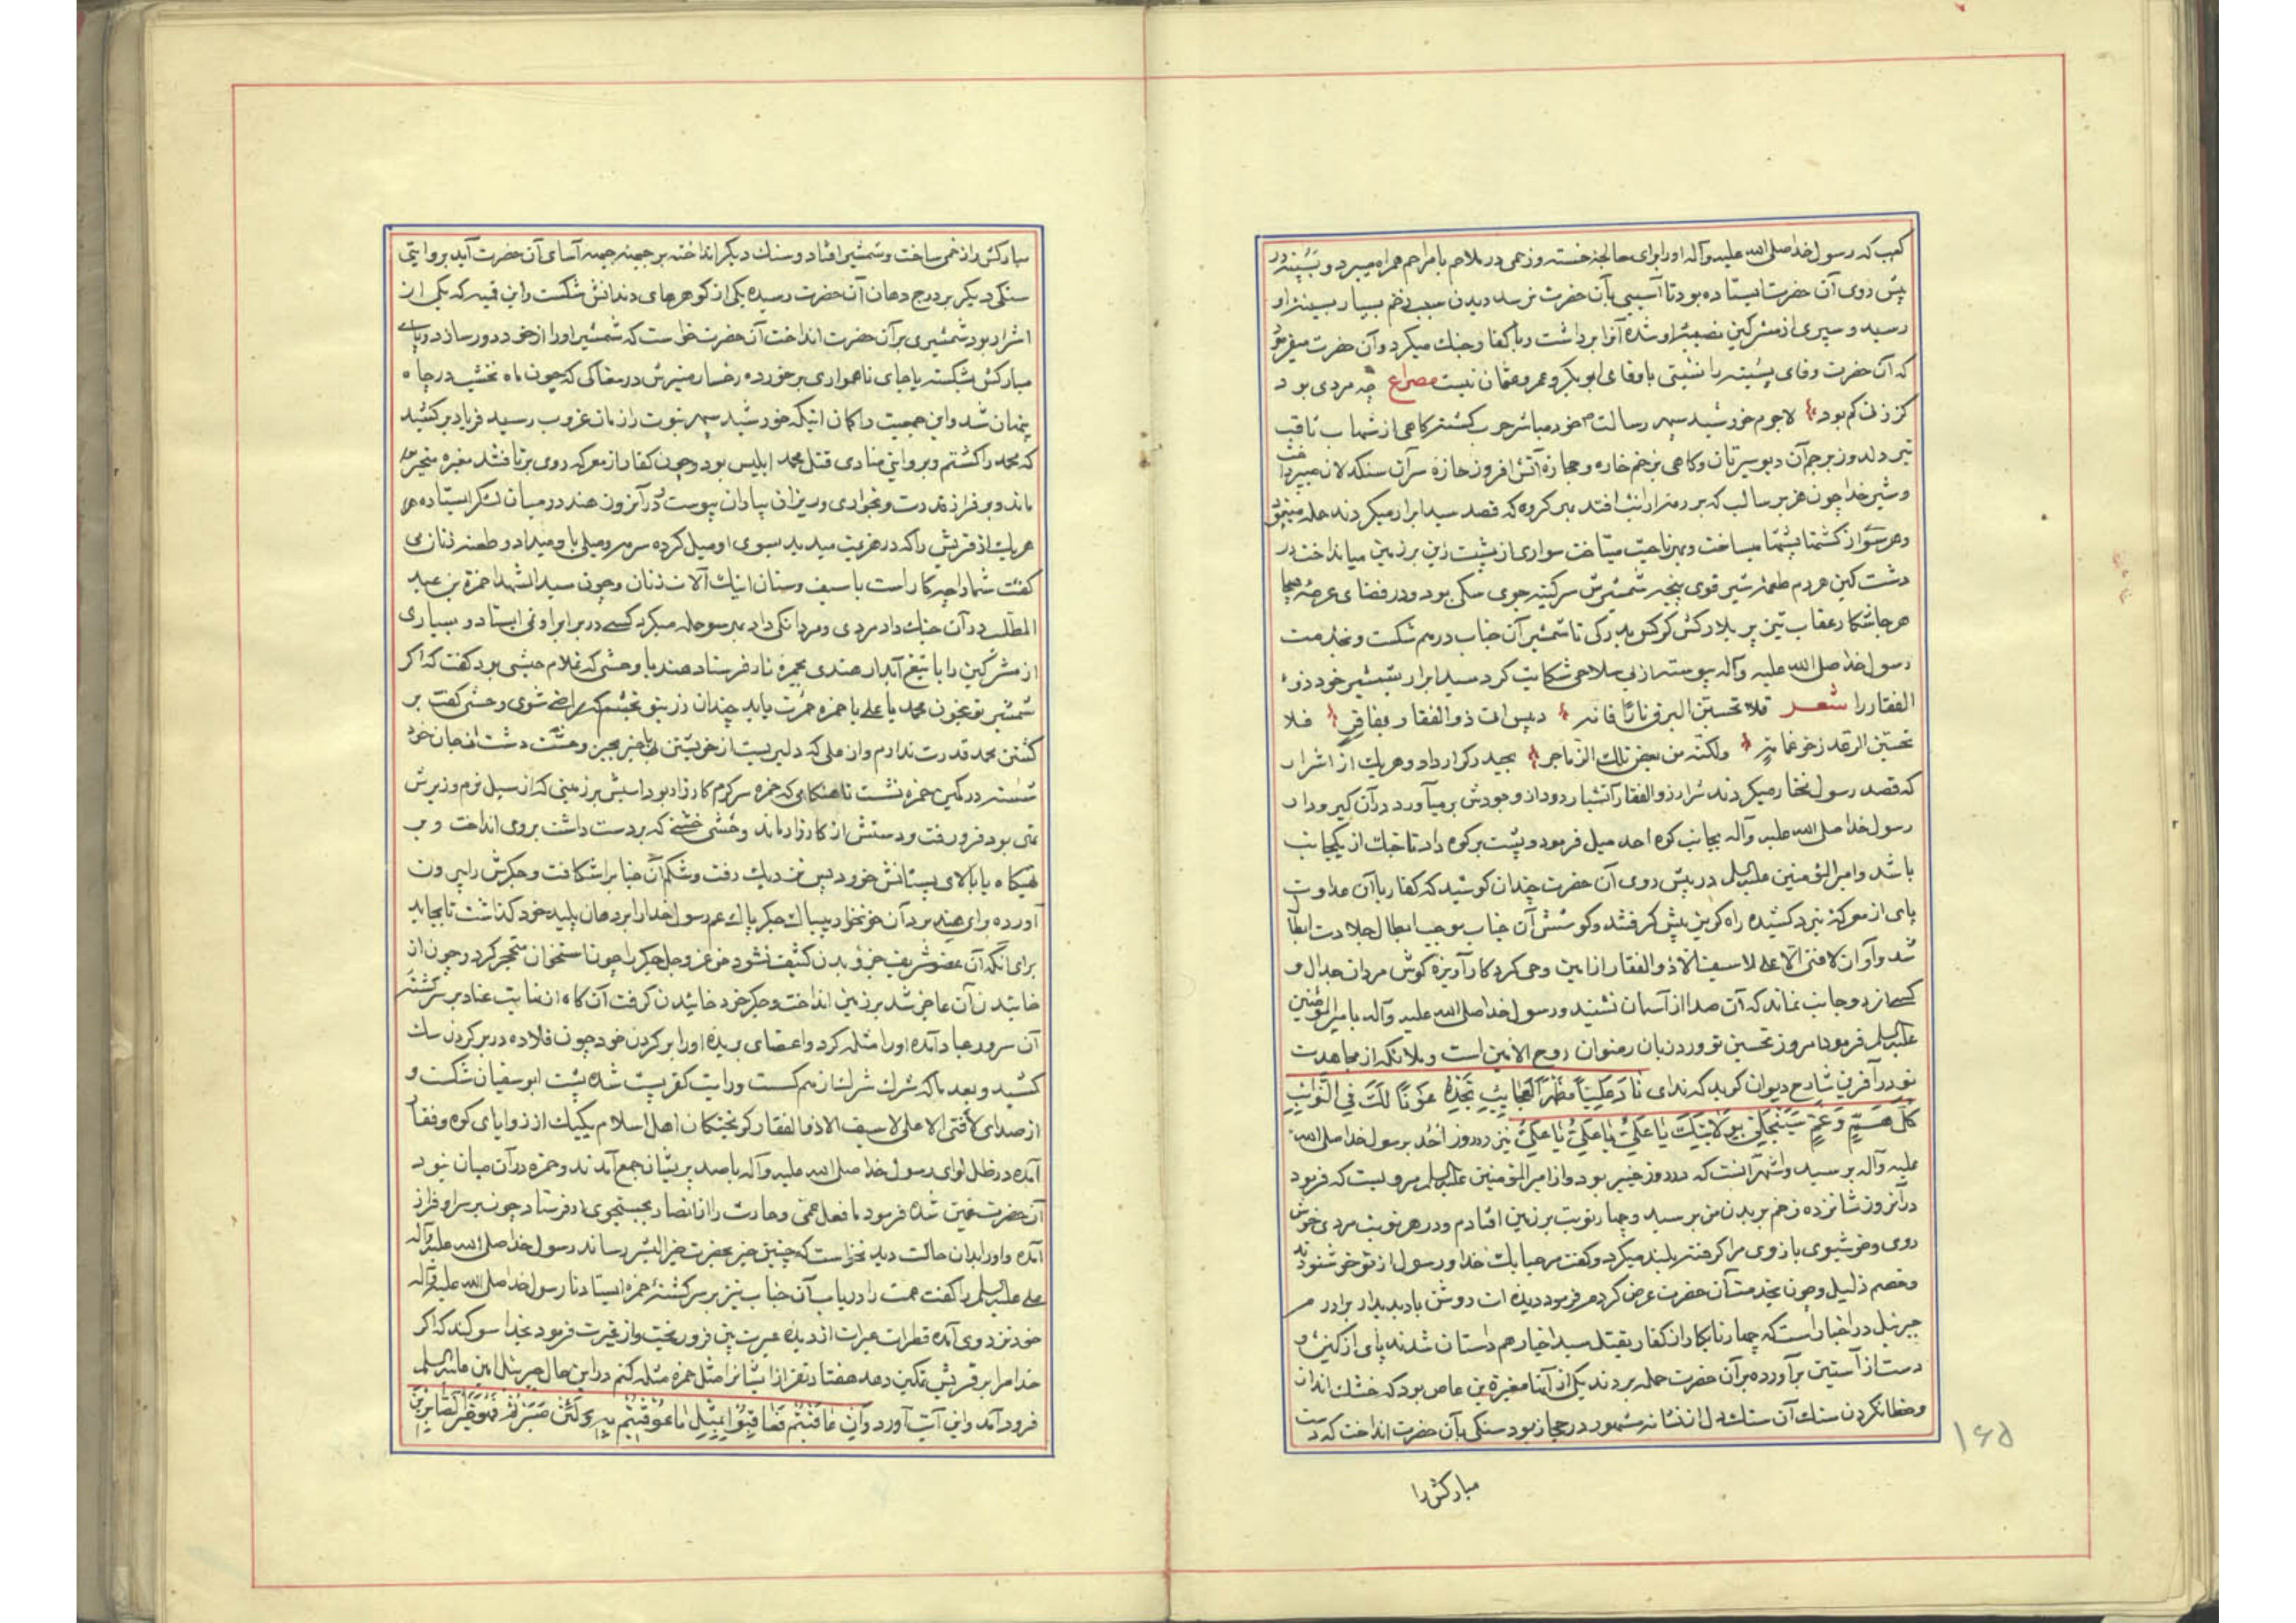 کعب که رسول خدا صلی الله علیه وآله او را برای معالجهٔ خسته و زخمی در ملاحم با مراحم همراه میبرد و نسیبه در
پیش روی آن حضرت ایستاده بود تا آسیبی بآن حضرت نرسد دیدن سبب زخم بسیار بسینهٔ او
رسید و سپری از مشرکین نصیبهٔ او شده آنرا برداشت و با کفار جنك میکرد و آن حضرت میفرمود
که آن حضرت وفای نسیبه را نسبتی با وفای ابو بکر و عمر و عثمان نیست مصراع چه مردی بود
کز زنی کم بود لاجرم خورشید سپهر رسالت خود مباشر حرب گشته گاهی از شهاب ثاقب
تیر دلدوز بر جم آن دیو سیرتان و گاهی بزخم خاره و حجاره آتش افروز حازه سر آن سنگدلان میپرداخت
و شیر خدا چون هزبر سالب که بر رمه ارانب افتد بهر گروه که قصد سید ابرار میکردند حمله مینمود
وهر سو از کشتها پشتها میساخت و بهر ناحیت میتاخت سواری از پشت زین بر زمین میانداخت در
دشت کین هر دم طعمهٔ شیر قوی پنجهٔ شمشیرش سرکینه جوی سکی بود و در فضای عرصهٔ هیجا
هر جا شکار عقاب تیز پر بلارکش کرکس پدرکی تا شمشیر آن جناب درهم شکست و بخدمت
رسول خدا صلی الله علیه وآله پیوسته از بی سلاحی شکایت کرد سید ابرار شمشیر خود ذو
الفقار را شعر فلا تحسبن البرق نارا فانه دمیس ات ذو الفقار بفاقر فلا
تحسبن الرعد زخر غمامة ولکنه من بعض تلك الزماجر بحیدر کرار داد و هریك از اشرار
که قصد رسول مختار میکردند شرار ذو الفقار آتشبار دود از وجودش برمیآورد در آن گیر و دار
رسول خدا صلی الله علیه وآله بجانب کوه احد میل فرمود و پشت بر کوه داد تا جنك از یکجانب
باشد و امیر المؤمنین علیه السلم در پیش روی آن حضرت چندان کوشید که کفار با آن عداوت
پای از معرکهٔ نبرد کشیده راه گریز پیش گرفتند و کوشش آن جناب موجب ابطال جلادت ابطال
شد و آواز لا فتی الا علی لا سیف الا ذو الفقار از امین وحی کردکار آویزهٔ گوش مردان جدال و
کسی از دو جانب نماند که آن صدا از آسمان نشنید و رسول خدا صلی الله علیه وآله با امیر المؤمنین
علیه السلم فرمود امروز تحسین تو ورد زبان رضوان روح الامین است و ملائکه از مجاهدت
تو در آفرین شارح دیوان گوید که ندای نادِ عَلِیّاً مَظهَرَ العَجایِبِ تَجِدهُ عَوناً لَکَ فِی النَّوایِبِ
کُلُّ هَمٍّ وَ غَمٍّ سَیَنجَلی بِوِلایَتِکَ یا عَلیُّ یا عَلیُّ یا عَلیُّ نیز در روز اُحُد برسول خدا صلی الله
علیه وآله برسید و اشهر آنست که در روز خیبر بود و از امیر المؤمنین علیه السلم مرویست که فرمود
در آنروز شانزده زخم بر بدن من برسید و چهار نوبت بر زمین افتادم و در هر نوبت مردی خوش
روی و خوشبوی بازوی مرا گرفته بلند میکرد و گفت مرحبا بك خدا و رسول از تو خوشنودند
و خصم ذلیل و چون بخدمت آن حضرت عرض کردم فرمود دیده ات روشن باد بدیدار برادرم
جبرئیل در اخبار است که چهار نابکار از کفار بقتل سید اخیار همداستان شدند پای از کین و
دست از آستین برآورده بر آن حضرت حمله بردند یکی از آنها مغیرة بن عاص بود که خشك انداز
و خطا نکردن سنك آن سنك دل از نشانه مشهور در حجاز بود سنگی بآن حضرت انداخت که دست
مبارکش را
۱۶۵
مبارکش را زخمی ساخت و شمشیر افتاد و سنك دیگر انداخته بر جبینهٔ جبههٔ آسای آن حضرت آید بروایتی
سنگی دیگر بر درج دهان آن حضرت رسیده یکی از گوهرهای دندانش شکست و ابن قمیه که یکی از
اشرار بود شمشیری بر آن حضرت انداخت آن حضرت خواست که شمشیر او را از خود دور سازد و پای
مبارکش بشکسته یا جای ناهمواری برخورده رخسار منیرش در مغاکی که چون ماه نخشب در چاه
پنهان شد و این جمعیت را گمان اینکه خورشید سپهر نبوت را زمان غروب رسید فریاد برکشید
که محمد را کشتم و بروایتی منادی قتل محمد ابلیس بود و چون کفار از معرکه روی برتافتند مغیره متحیر
ماند و بر فراز قدرت و نخواری و ریزان پیادان پیوست و در آنزون هند در میان لشکر ایستاده
هریك از قریش را که در هزیمت میدید بسوی او میل کرده سرمه و میلی باو میداد و طعنه زنان می
گفت شما را چکار است با سیف و سنان اینك آلات زنان و چون سید الشهدا حمزة بن عبد
المطلب در آن جنك داد مردی و مردانگی داد بهر سو حمله میکرد کسی در برابر او نمی ایستاد و بسیاری
از مشرکین را با تیغ آبدار هندی بجمرهٔ نار فرستاد هند با وحشی که غلام حبشی بود گفت که اگر
شمشیر تو بخون محمد یا علی یا حمزه حمرت یابد چندان زر بتو بخشم که راضی شوی وحشی گفت بر
کشتن محمد قدرت ندارم و از علی که دلیریست از خویشتن باخبر بجز وحشت دشت از جان خود
شسته در کمین حمزه نشست تا هنگامی که حمزه سرگرم کارزار بود اسبش بر زمینی که از سیل نرم و زیرش
تهی بود فرو رفت و دستش از کارزار ماند وحشی خشتی که بر دست داشت بروی انداخت و بر
تهیگاه یا بالای پستانش خورد پس نزدیك رفت و شکم آن جناب را شکافت و جگرش را بیرون
آورده برای هند برد آن خونخوار بیباك جگر پاك عم رسول خدا را بر دهان پلید خود گذاشت تا بخاید
برای آنکه آن عضو شریف جزو بدن کثیف نشود حق عز و جل جگر را چون استخوان متحجر کرد و چون از
خائیدن آن عاجز شد بر زمین انداخت و جگر خود خائیدن گرفت آن گاه از غایت عناد بر سر کشتهٔ
آن سرور عباد آمده او را مثله کرد و اعضای بریده او را بر گردن خود چون قلاده در بر گردن سك
کشید و بعد ما که شرك شرکشان زهم گسست و رایت کفر پست شده پشت ابو سفیان شکست و
از صدای لا فتی الا علی لا سیف الا ذو الفقار گریختگان اهل اسلام یکیك از زوایای کوه و قفار
آمده در ظل لوای رسول خدا صلی الله علیه وآله با صد پریشان جمع آمدند و حمزه در آن میان نبود
آن حضرت غمین شده فرمود ما فعل عمی و حارث را از انصار بجستجوی او فرستاد چون بر سر او فراز
آمده و او را بدان حالت دید نخواست که چنین خبر بحضرت خیر البشر رساند رسول خدا صلی الله علیه وآله
علی علیه السلم را گفت عمت را دریاب آن جناب نیز بر سر کشتهٔ حمزه ایستاد تا رسول خدا صلی الله علیه وآله
خود نزد وی آمده قطرات عبرات از دیدهٔ عبرت بین فرو ریخت و از غیرت فرمود بخدا سوگند که اگر
خدا مرا بر قریش تمکین دهد هفتاد نفر از ایشانرا مثل حمزه مثله کنم در این حال جبرئیل امین علیه السلم
فرود آمد و این آیت آورد وَ اِن عاقَبتُم فَعاقِبُوا بِمِثلِ ما عُوقِبتُم بِه وَ لَئِن صَبَرتُم لَهُوَ خَیرٌ لِلصّابِرینَ